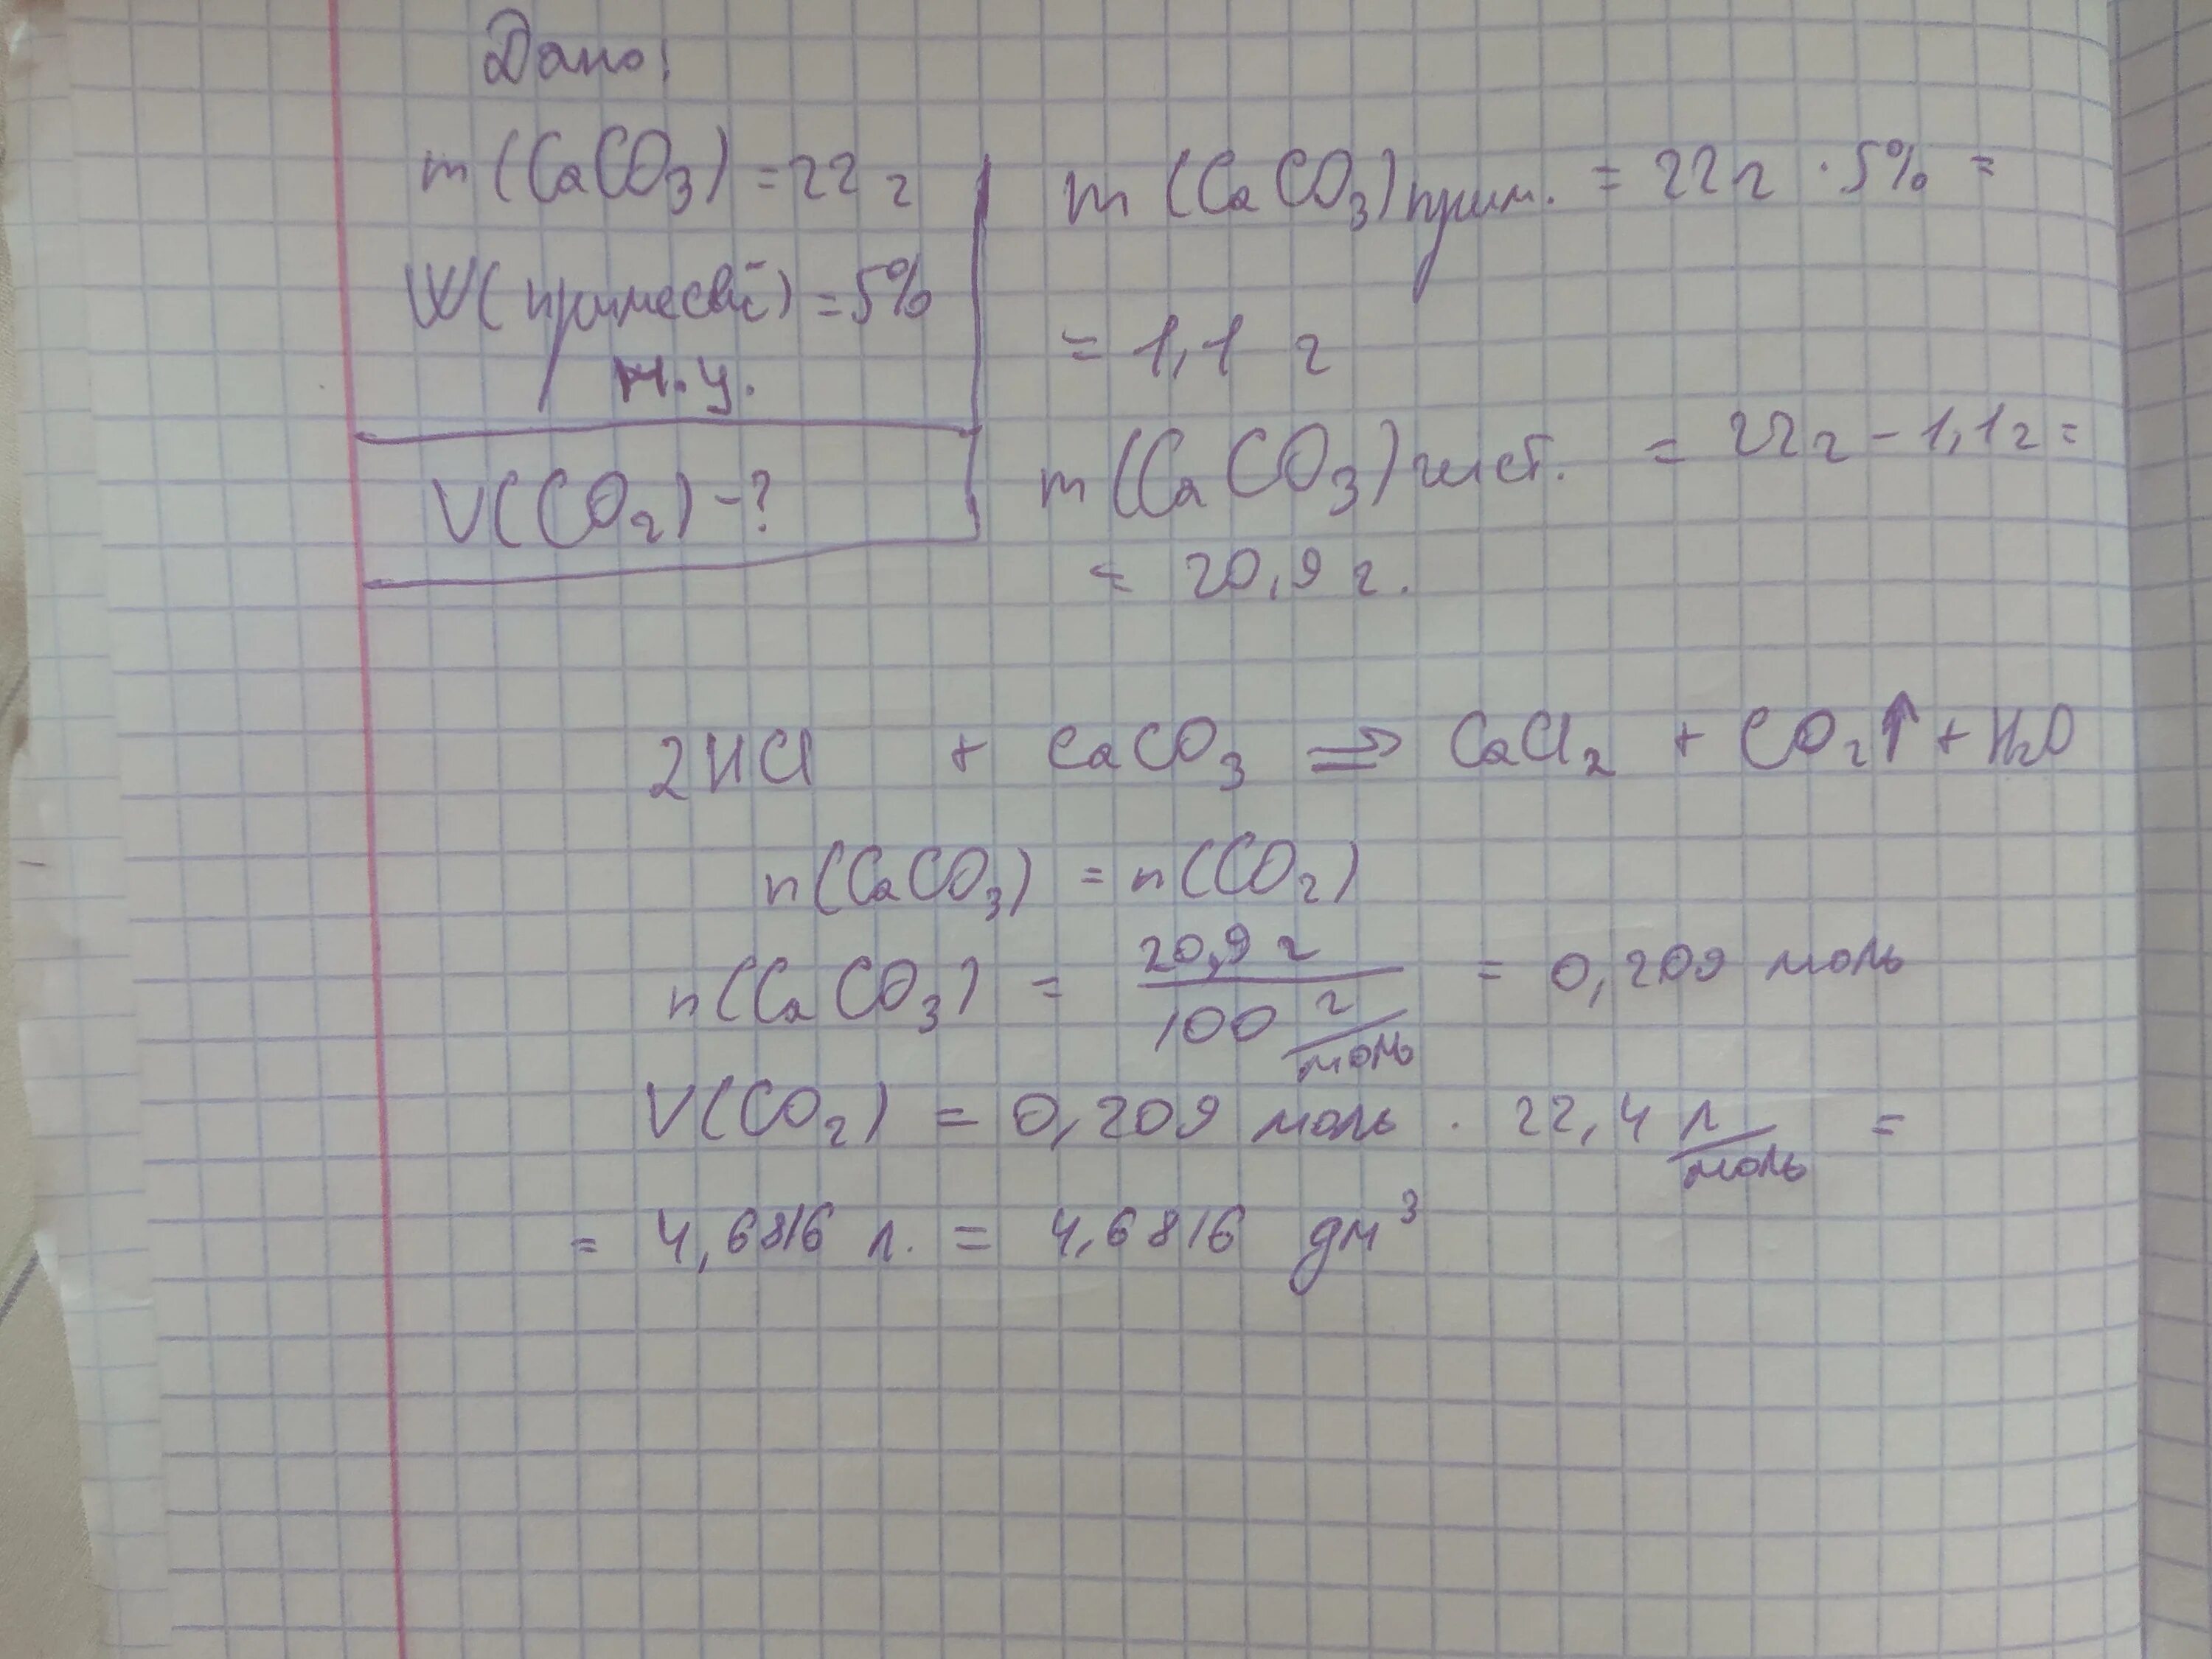 Дано:
m(CaCO₃) = 22 г
W(примесей) = 5%
н.у.
V(CO₂) - ?
m(CaCO₃)прим. = 22 г · 5% =
= 1,1 г
m(CaCO₃)чист. = 22 г - 1,1 г =
= 20,9 г.
2HCl + CaCO₃ ⇒ CaCl₂ + CO₂↑ + H₂O
n(CaCO₃) = n(CO₂)
n(CaCO₃) = 20,9 г / 100 г/моль = 0,209 моль
V(CO₂) = 0,209 моль · 22,4 л/моль =
= 4,6816 л. = 4,6816 дм³